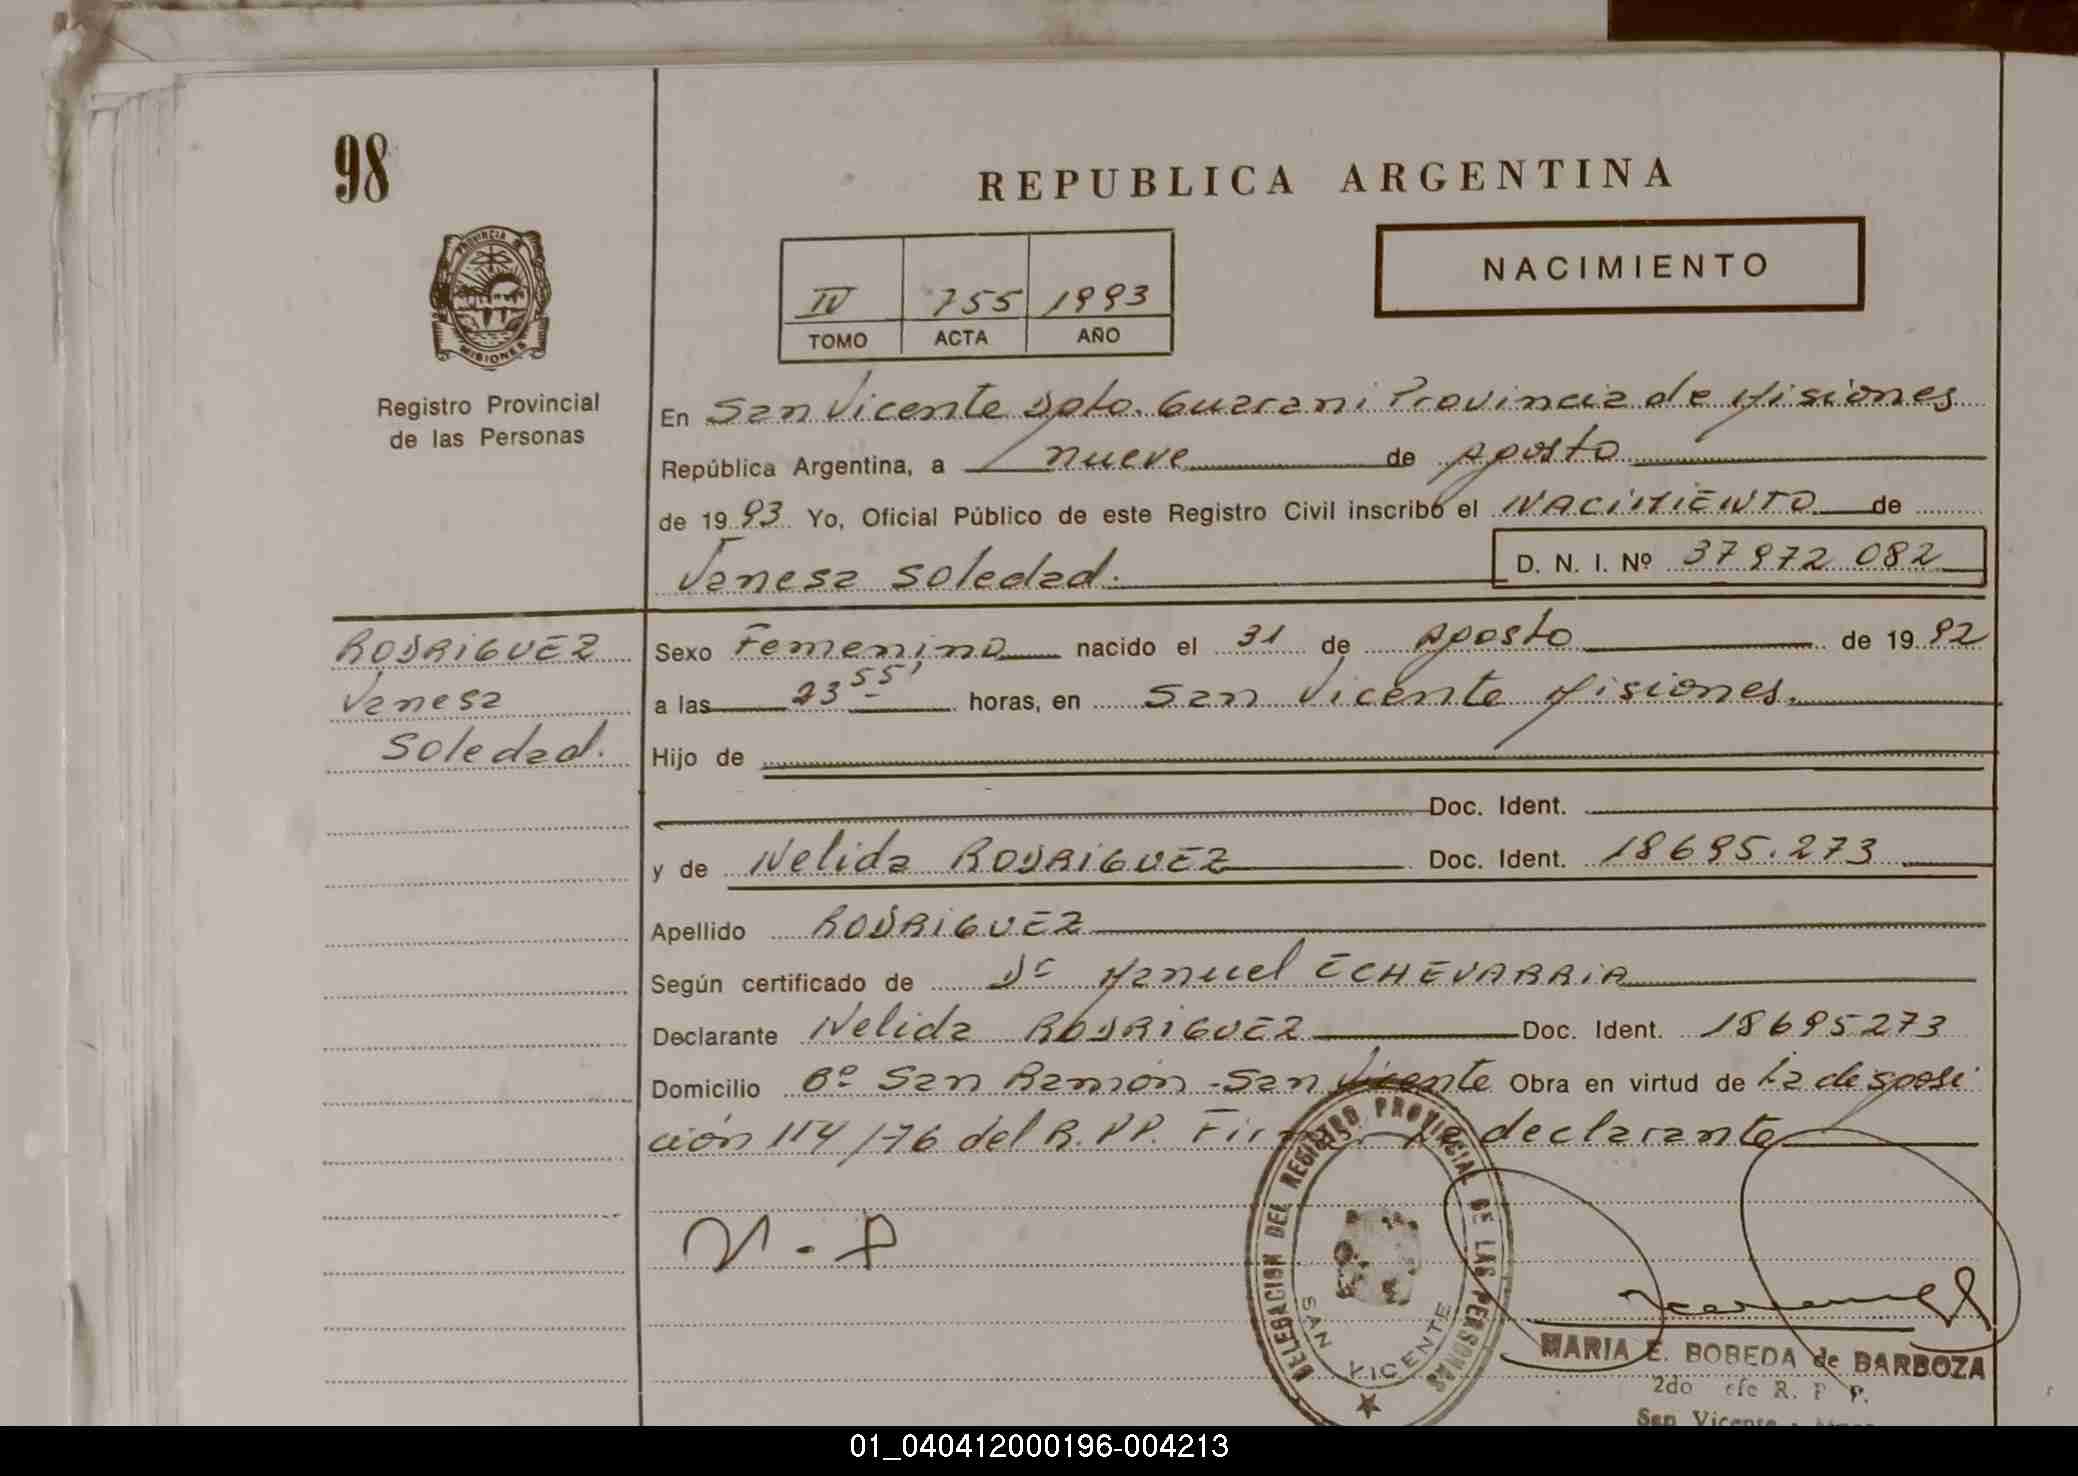 98
REPUBLICA ARGENTINA
NACIMIENTO
PROVINCIA DE
MISIONES
IV 755 1993
TOMO ACTA AÑO
Registro Provincial
de las Personas
En San Vicente Dpto. Guarani Provincia de Misiones
República Argentina, a nueve de Agosto
de 1993 Yo, Oficial Público de este Registro Civil inscribo el NACIMIENTO de
Vanesa Soledad. D. N. I. Nº 37972 082
RODRIGUEZ
Vanesa
Soledad.
Sexo Femenino nacido el 31 de Agosto de 1992
a las 23 55' horas, en San Vicente Misiones.
Hijo de
Doc. Ident.
y de Nelida RODRIGUEZ Doc. Ident. 18695.273
Apellido RODRIGUEZ
Según certificado de Dr Manuel ECHEVARRIA
Declarante Nelida RODRIGUEZ Doc. Ident. 18695273
Domicilio Bº San Ramón - San Vicente Obra en virtud de la desposi
ción 114/76 del R.PP. declarante
N. P
DELEGACION DEL REGISTRO PROVINCIAL DE LAS PERSONAS
SAN VICENTE
MARIA E. BOBEDA de BARBOZA
2do R. P P.
San Vicente
01_040412000196-004213